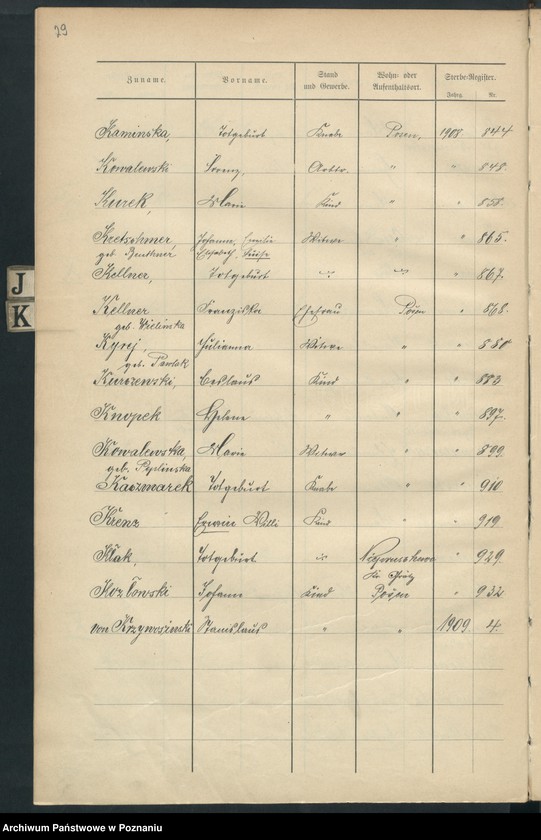 29
Zuname. Vorname. Stand und Gewerbe. Wohn- oder Aufenthaltsort. Sterbe-Register.
Jahrg. Nr.
Kaminska, Totgeburt Knabe Posen, 1908. 844
Kowalewski Lorenz, Arbtr. " " 848.
Kurek, Marie Kind " " 858.
Kretschmer, Johanna, Emilie Witwe " " 865.
geb. Elisabeth, Luise
Kellner, Totgeburt " 867.
Kellner Franziska Ehefrau Posen " 868.
geb. Wielinska
Kyrej Julianna Witwe " " 880
geb. Pawlak
Kurszewski, Ceslaus Kind " " 883
Knopek Helene " " " 897.
Kowalewska, Marie Witwe " " 899.
geb.
Kaczmarek Totgeburt Knabe " " 910
Krenz Erwin Willi Kind " " 919
Klak, Totgeburt " 929
Kozlowski Johann Kind Posen " 932
von Krzywosinski Stanislaus " " 1909. 4.
J
K
Archiwum Państwowe w Poznaniu